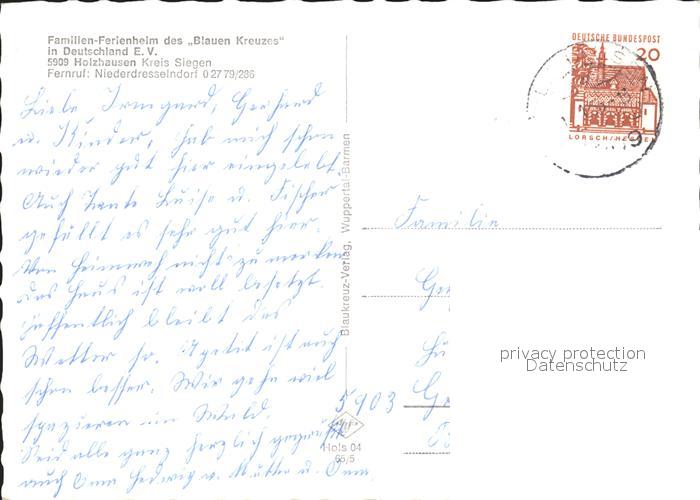 Familien-Ferienheim des „Blauen Kreuzes"
in Deutschland E. V.
5909 Holzhausen Kreis Siegen
Fernruf: Niederdresselndorf 0 27 79/286
Liebe Irmgard, Gerhard
u. Kinder, hab mich schon
wieder gut hier eingelebt.
Auch Tante Luise u. Fischer
gefällt es sehr gut hier.
Von Heimweh nichts zu merken
das Haus ist voll besetzt.
hoffentlich bleibt das
Wetter so. Apetit ist auch
schon besser. Wir gehn viel
spazieren im Wald.
Seid alle ganz herzlich gegrüßt
auch Oma Hedwig u. Mutter u. Oma
Blaukreuz-Verlag, Wuppertal-Barmen
Hols 04
65/5
DEUTSCHE BUNDESPOST
20
LORSCH/HESSEN
Familie
5903
privacy protection
Datenschutz